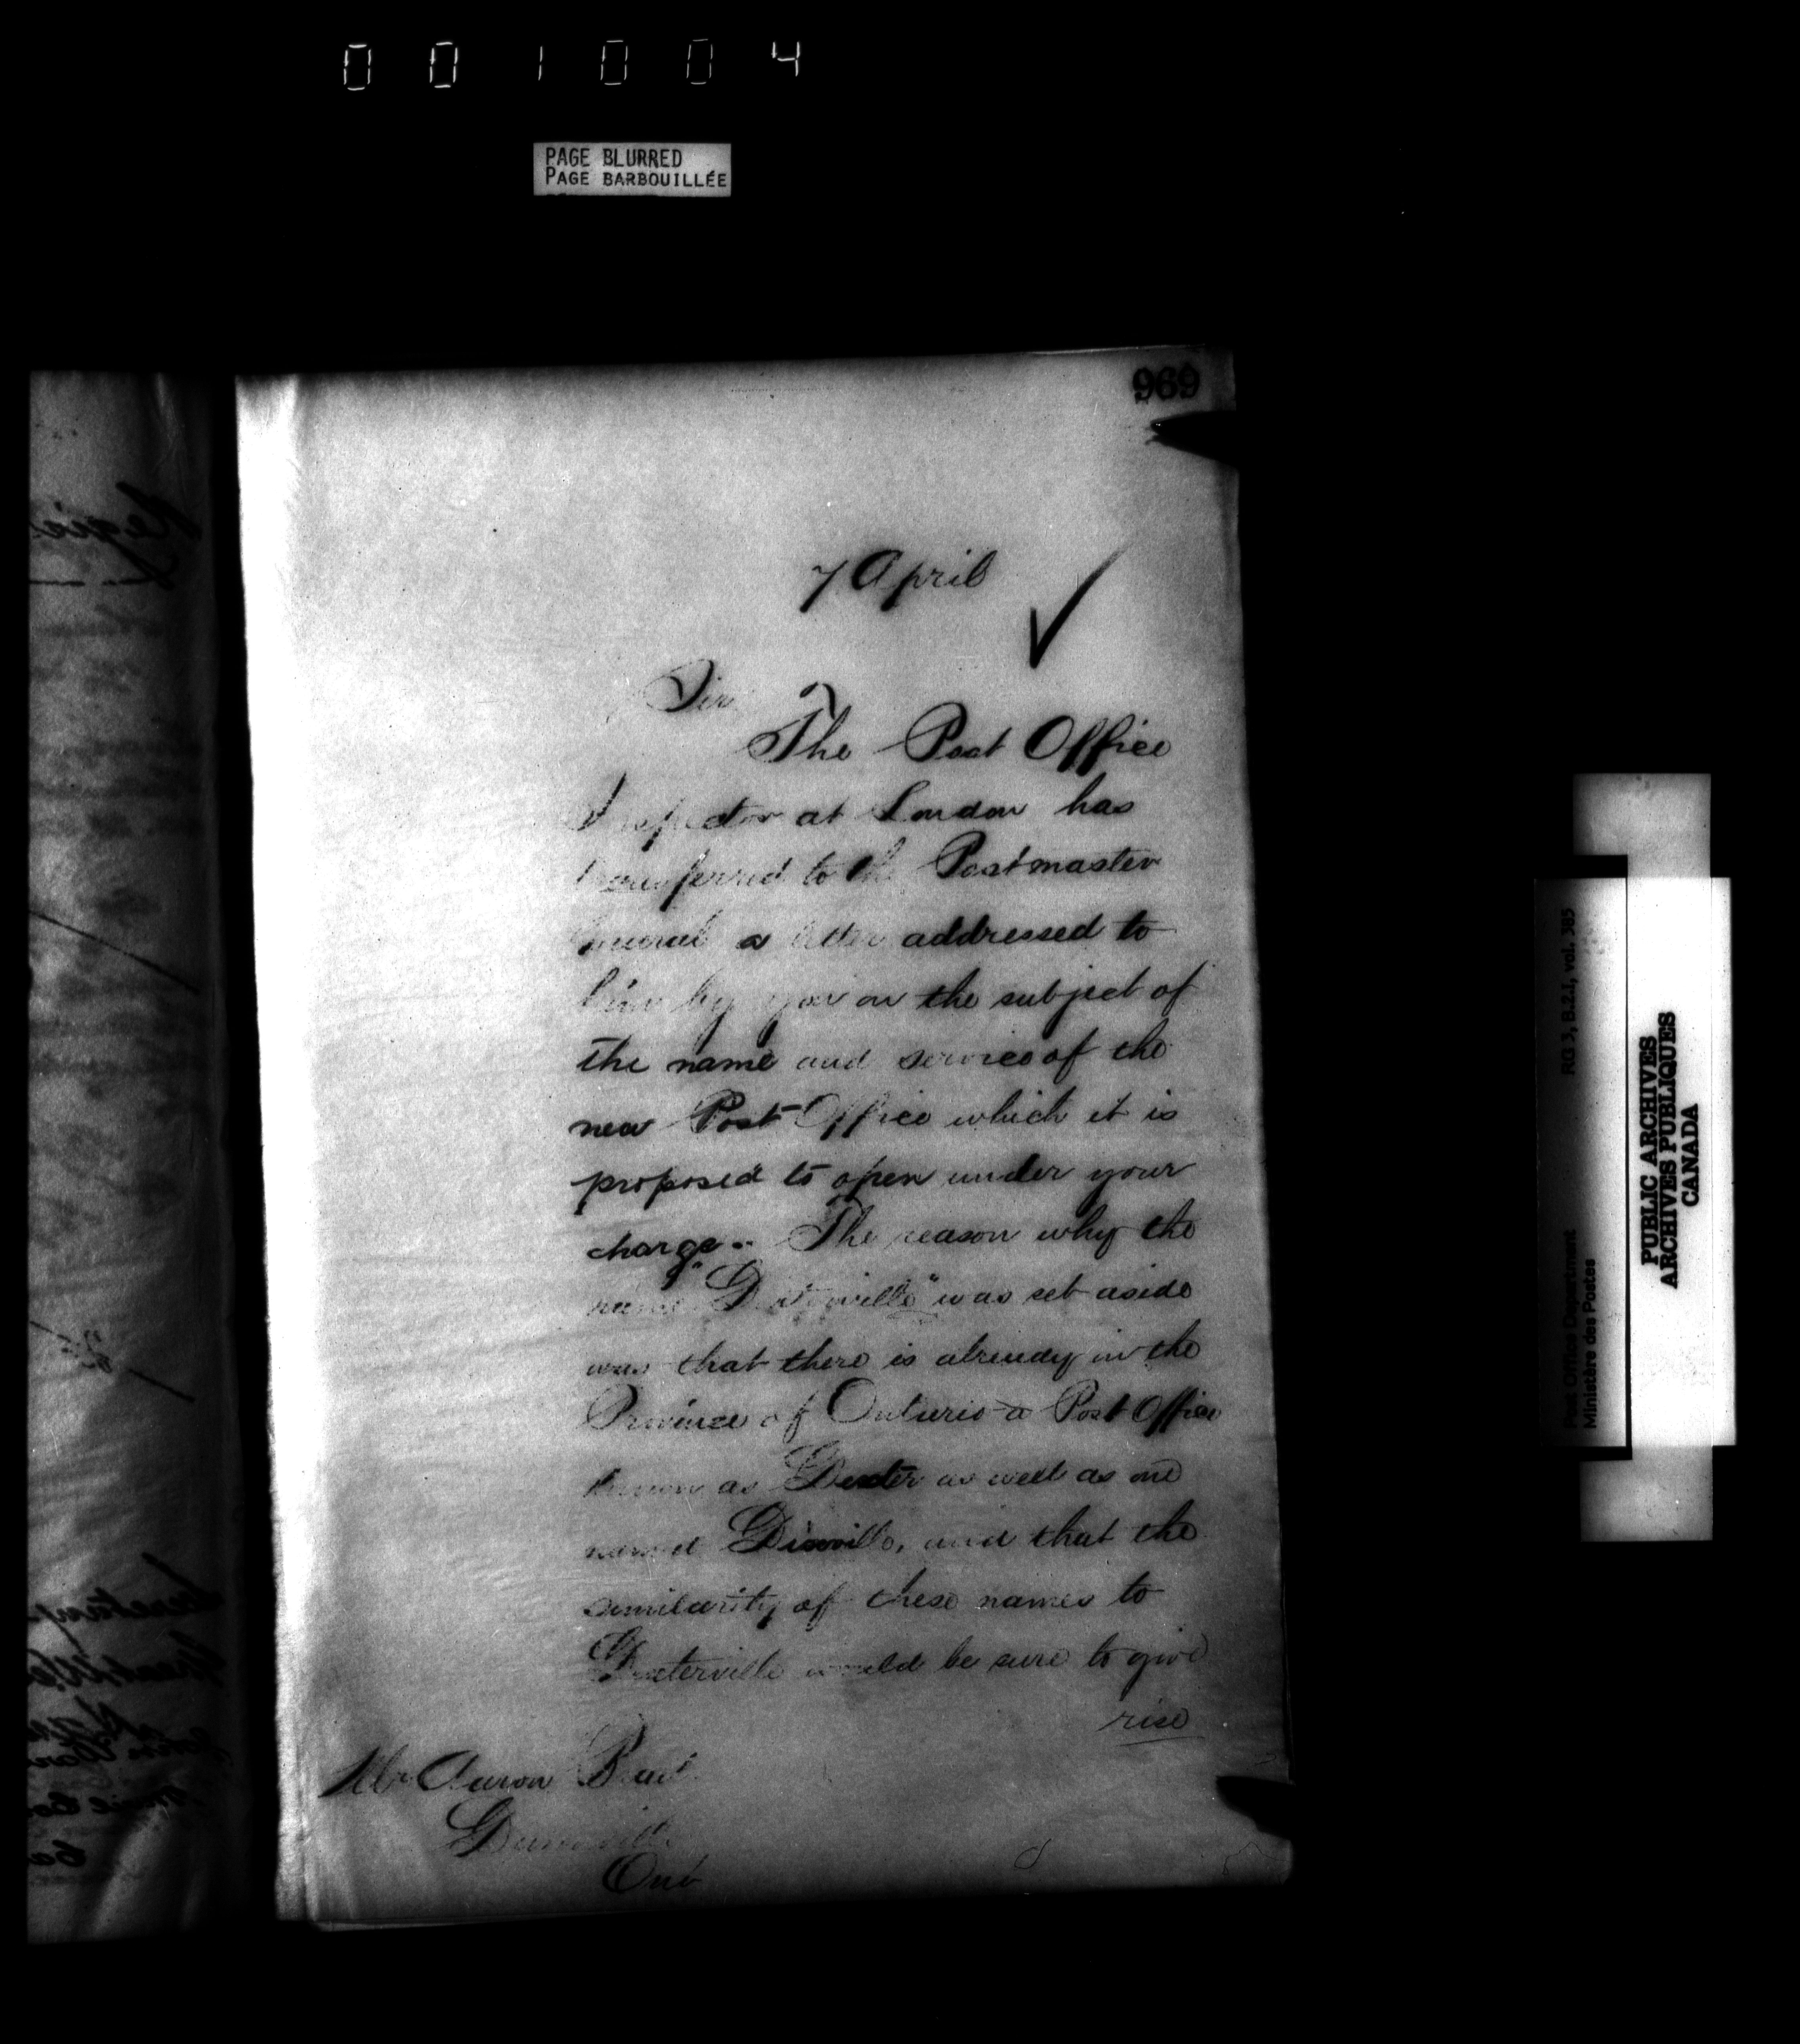 001004
PAGE BLURRED
PAGE BARBOUILLÉE
969
7 April
Sir
The Post Office
Inspector at London has
transferred to the Postmaster
General a letter addressed to
him by you on the subject of
the name and service of the
new Post Office which it is
proposed to open under your
charge. The reason why the
name " was set aside
was that there is already in the
Province of Ontario a Post Office
known as Dexter as well as one
named and that the
similarity of these names to
Dexterville would be sure to give
rise
Mr Aaron
Ont
RG 3, B.2.I, vol. 385
Post Office Department
Ministère des Postes
PUBLIC ARCHIVES
ARCHIVES PUBLIQUES
CANADA